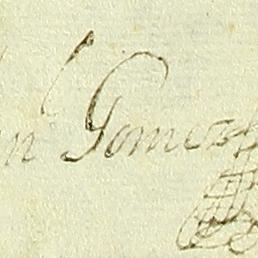 n Gomez